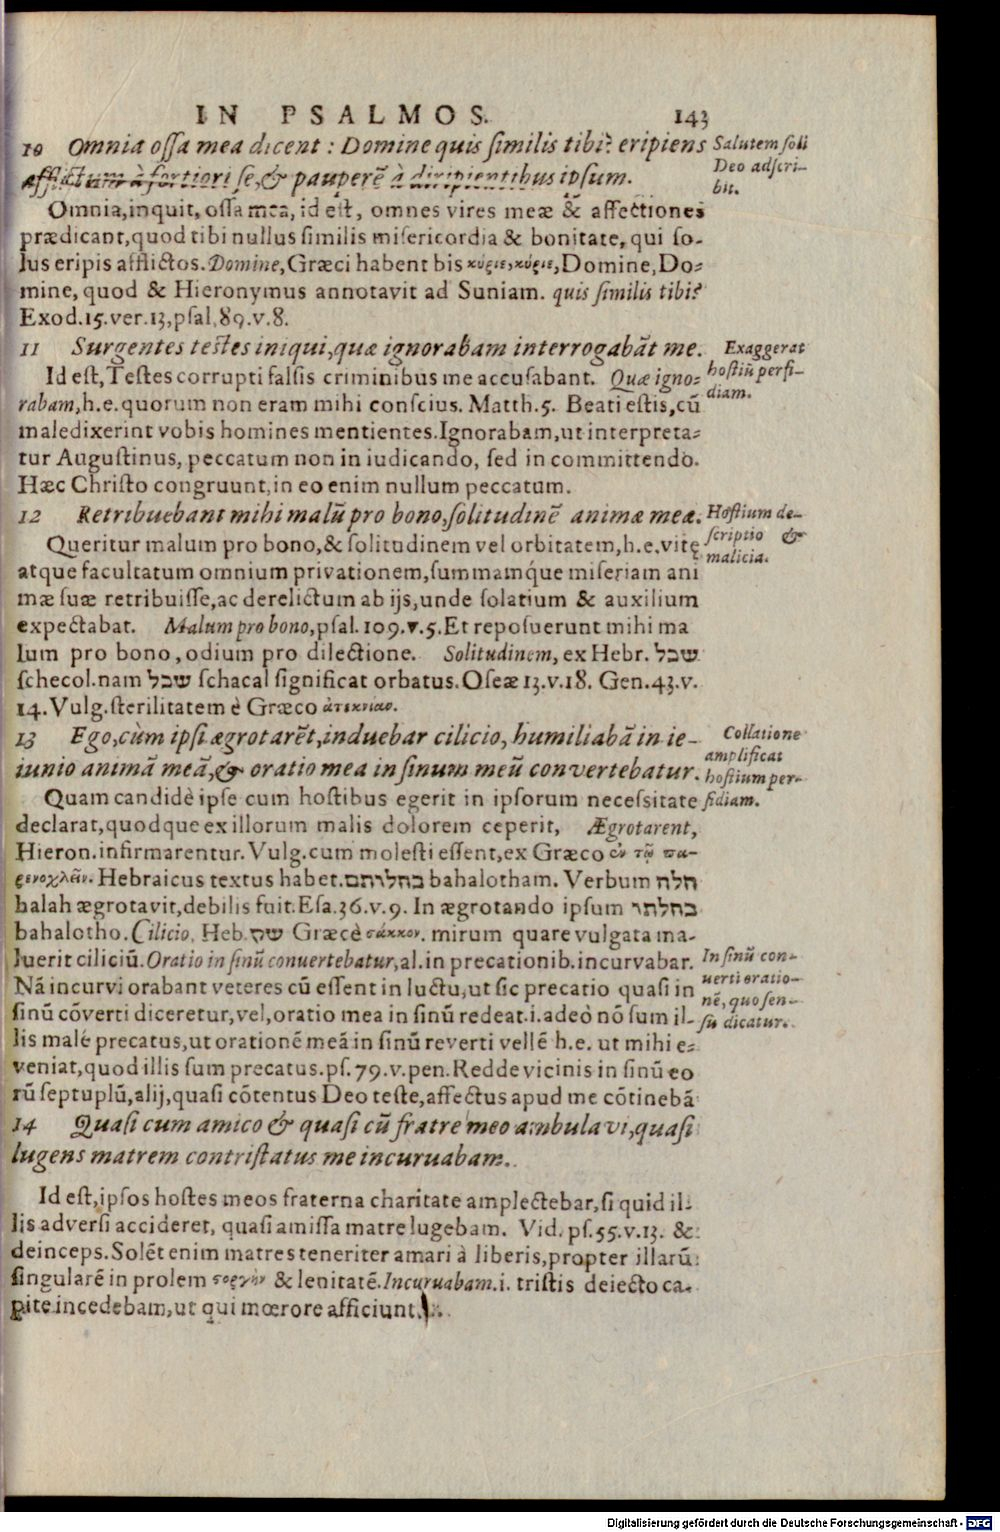 IN PSALMOS. 143
10 Omnia ossa mea dicent : Domine quis similis tibi? eripiens
afflictum à fortiori se, & pauperē à diripientibus ipsum.
Salutem soli
Deo adscri-
bit.
Omnia, inquit, ossa mea, id est, omnes vires meæ & affectiones
prædicant, quod tibi nullus similis misericordia & bonitate, qui so-
lus eripis afflictos. Domine, Græci habent bis κύριε, κύριε, Domine, Do-
mine, quod & Hieronymus annotavit ad Suniam. quis similis tibi?
Exod. 15. ver. 13, psal. 89. v. 8.
11 Surgentes testes iniqui, quæ ignorabam interrogabāt me.
Exaggerat
hostiū perfi-
diam.
Id est, Testes corrupti falsis criminibus me accusabant. Quæ igno-
rabam, h.e. quorum non eram mihi conscius. Matth. 5. Beati estis, cū
maledixerint vobis homines mentientes. Ignorabam, ut interpreta-
tur Augustinus, peccatum non in iudicando, sed in committendo.
Hæc Christo congruunt, in eo enim nullum peccatum.
12 Retribuebant mihi malū pro bono, solitudinē animæ meæ.
Hostium de-
scriptio &
malicia.
Queritur malum pro bono, & solitudinem vel orbitatem, h.e. vitę
atque facultatum omnium privationem, summamq́ue miseriam ani
mæ suæ retribuisse, ac derelictum ab ijs, unde solatium & auxilium
expectabat. Malum pro bono, psal. 109. v. 5. Et reposuerunt mihi ma
lum pro bono, odium pro dilectione. Solitudinem, ex Hebr. שכל
schecol. nam שכל schacal significat orbatus. Oseæ 13. v. 18. Gen. 43. v.
14. Vulg. sterilitatem è Græco ἀτεκνίαν.
13 Ego, cùm ipsi ægrotarēt, induebar cilicio, humiliabā in ie-
iunio animā meā, & oratio mea in sinum meū convertebatur.
Collatione
amplificat
hostium per-
fidiam.
Quam candidè ipse cum hostibus egerit in ipsorum necessitate
declarat, quodque ex illorum malis dolorem ceperit, Ægrotarent,
Hieron. infirmarentur. Vulg. cum molesti essent, ex Græco ἐν τῷ πα-
ρενοχλεῖν. Hebraicus textus habet. בחלותם bahalotham. Verbum חלה
halah ægrotavit, debilis fuit. Esa. 36. v. 9. In ægrotando ipsum בחלתו
bahalotho. Cilicio, Heb. שק Græcè σάκκον. mirum quare vulgata ma-
luerit ciliciū. Oratio in sinū convertebatur, al. in precationib. incurvabar.
Nā incurvi orabant veteres cū essent in luctu, ut sic precatio quasi in
sinū cōverti diceretur, vel, oratio mea in sinū redeat .i. adeò nō sum il-
lis malè precatus, ut orationē meā in sinū reverti vellē h.e. ut mihi e-
veniat, quod illis sum precatus. ps. 79. v. pen. Redde vicinis in sinū eo
rū septuplū, alij, quasi cōtentus Deo teste, affectus apud me cōtinebā
In sinū con-
uerti oratio-
nē, quo sen-
sū dicatur.
14 Quasi cum amico & quasi cū fratre meo ambulavi, quasi
lugens matrem contristatus me incuruabam.
Id est, ipsos hostes meos fraterna charitate amplectebar, si quid il-
lis adversi accideret, quasi amissa matre lugebam. Vid. ps. 55. v. 13. &
deinceps. Solēt enim matres teneriter amari à liberis, propter illarū
singularē in prolem στοργὴν & lenitatē. Incuruabam .i. tristis deiecto ca-
pite incedebam, ut qui mœrore afficiunt.
Digitalisierung gefördert durch die Deutsche Forschungsgemeinschaft - DFG